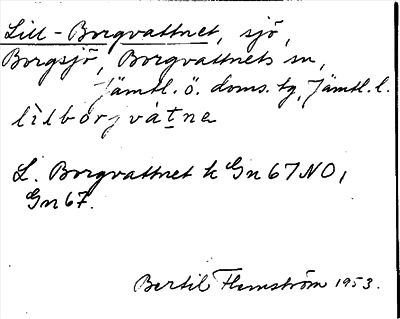 Lill-Borgvattnet, sjö,
Borgsjö, Borgvattnets sn,
Jämtl. ö. doms. tg, Jämtl. l.
lìlbórjvátne
L. Borgvattnet k Gn 67 NO,
Gn 67.
Bertil Flemström 1953.